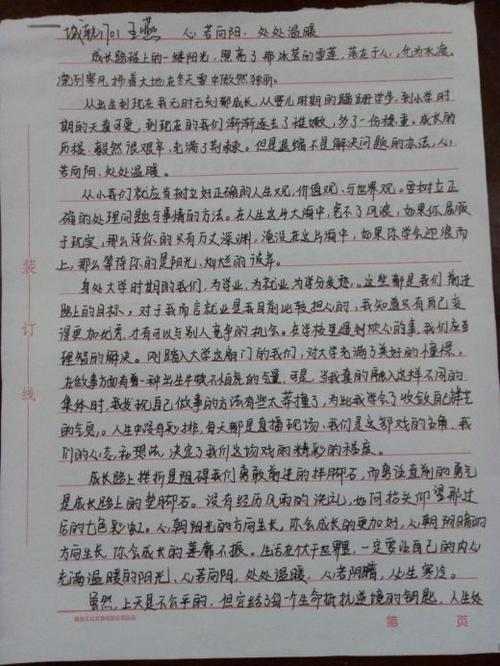 城轨1701 王燕 心若向阳，处处温暖
成长路程上的一缕阳光，照亮了那冰莹的雪莲，落在于人，化为水滴。
凛冽寒风抄着大地在冬天雪中傲然独丽。
从出生到现在我无时无刻都成长，从婴儿时期的蹒跚学步，到小学时
期的天真可爱，到现在的我们渐渐逝去了稚嫩，多了一份稳重。成长的
历程毅然很艰辛，充满了荆棘。但是退缩不是解决问题的办法，心
若向阳，处处温暖。
从小我们就应当树立好正确的人生观，价值观，与世界观。要树立正
确的处理问题与事情的方法。在人生这片大海中，免不了风浪，如果你屈服
于现实，那么待你的只有万丈深渊，淹没在这片海中，如果你学会迎浪而
上，那么等待你的是阳光，灿烂的彼岸。
身处大学时期的我们，为学业，为就业，为学分发愁。这些都是我们前进
路上的目标，对于我而言就业是我目前比较担心的，我知道只有自己变
得更加优秀，才有可以与别人竞争的机会。在学校里遇到烦心的事，我们应当
理智的解决。刚踏入大学这扇门的我们，对大学充满了美好的憧憬，
在做事方面有着一种出生牛犊不怕虎的含量，可是，当我真的融入这样不同的
集体时，我发现自己做事的方法有些太莽撞了，为此我学会了收敛自己
的。人生中没有彩排，每天都是直播现场，我们是这部戏的主角，我
们的心态和想法，决定了我们这场戏的精彩的程度。
成长路上挫折是阻碍我们勇敢前进的拌脚石，而勇往直前的勇气
是成长路上的垫脚石。没有经历风雨的洗礼，如何抬头仰望那过
后的七色彩虹。心朝阳光的方向生长，你会成长的更加好，心朝阴暗的
方向生长，你会成长的萎靡不振。生活在伏于世界里，一定要让自己的内心
充满温暖的阳光，心若向阳，处处温暖，心若阴暗，从生寒冷。
虽然，上天是不公平的，但它给了每一个生命抵抗逆境的钥匙，人生处
装
订
线
第 页